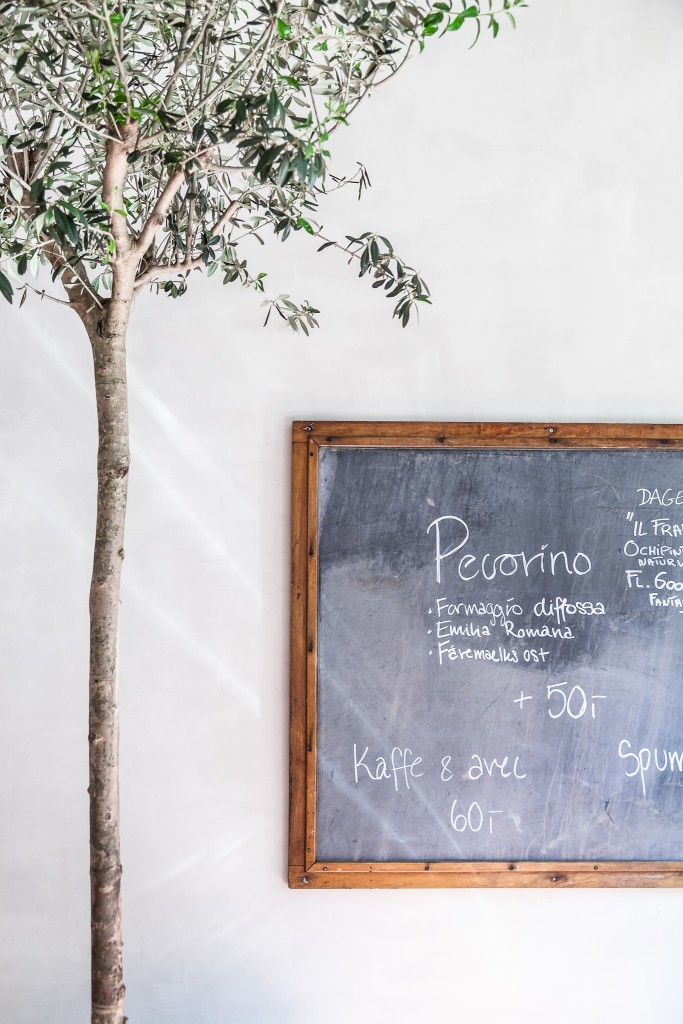 Pecorino
· Formaggio diffossa
· Emilia Romana
· Fåremaelks ost
+ 50,-
Kaffe & avec
60,-
DAGE
"IL FRA
OCHIPIN
NATURV
FL. 600
FANTA
Spum